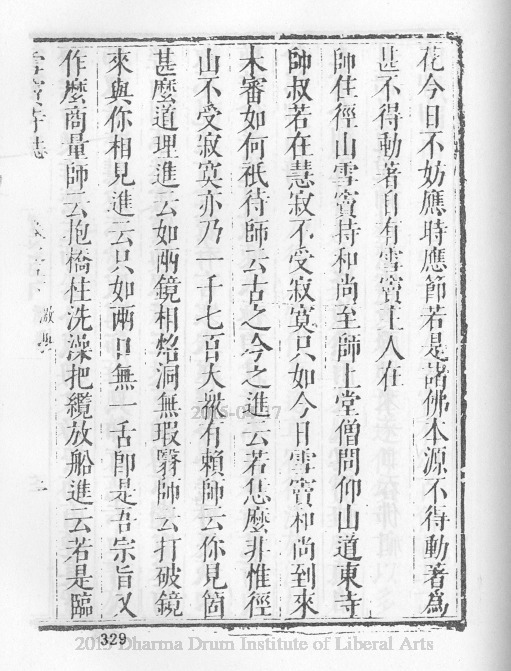 花今日不妨應時應節若是諸佛本源不得動著為
甚不得動著自有雪竇主人在
師住徑山雪竇持和尚至師上堂僧問仰山道東寺
師叔若在慧寂不受寂寞只如今日雪竇和尚到來
未審如何祇待師云古之今之進云若恁麼非惟徑
山不受寂寞亦乃一千七百大眾有賴師云你見箇
甚麼道理進云如兩鏡相照洞無瑕翳師云打破鏡
來與你相見進云只如兩口無一舌即是吾宗旨又
作麼商量師云抱橋柱洗澡把纜放船進云若是臨
雪竇寺誌
329
2015 Dharma Drum Institute of Liberal Arts